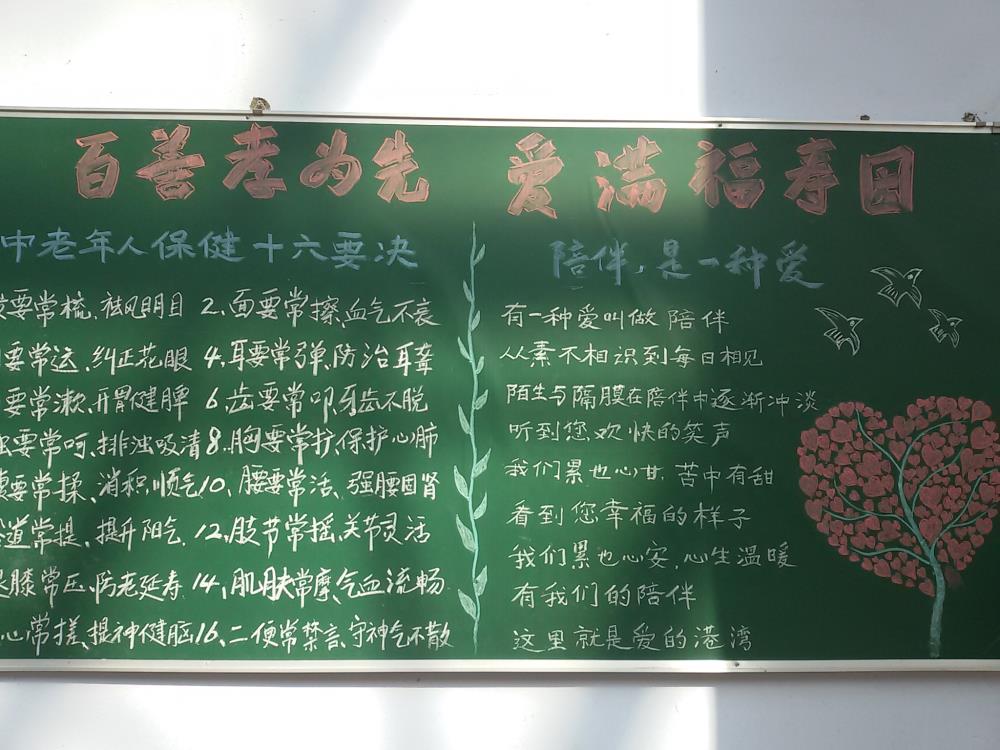 百善孝为先 爱满福寿园
中老年人保健十六要决
要常梳、祛风明目 2、面要常擦、血气不衰
要常运、纠正花眼 4、耳要常弹、防治耳聋
要常漱、开胃健脾 6、齿要常叩、牙齿不脱
要常呵、排浊吸清 8、胸要常扩、保护心肺
要常揉、消积顺气 10、腰要常活、强腰固肾
道常提、提升阳气 12、肢节常摇、关节灵活
膝常压、防老延寿 14、肌肤常摩、气血流畅
心常搓、提神健脑 16、二便常禁言、守神气不散
陪伴,是一种爱
有一种爱叫做陪伴
从素不相识到每日相见
陌生与隔膜在陪伴中逐渐冲淡
听到您欢快的笑声
我们累也心甘,苦中有甜
看到您幸福的样子
我们累也心安,心生温暖
有我们的陪伴
这里就是爱的港湾